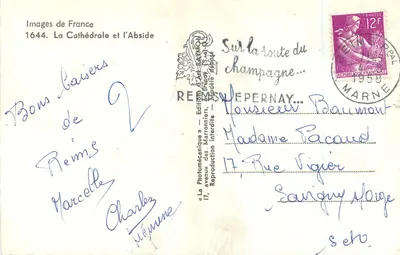 Images de France
1644. La Cathédrale et l'Abside
Bons baisers
de
Reims
Marcelle
Charles
« La Photomécanique » — Editions d'Art
17, avenue des Marronniers,
Reproduction interdite
Sur la route du
champagne...
REIMS EPERNAY...
12F
1958
MARNE
Monsieur Beaumont
Madame Pacaud
17, Rue Vigier
Savigny s/Orge
S et O